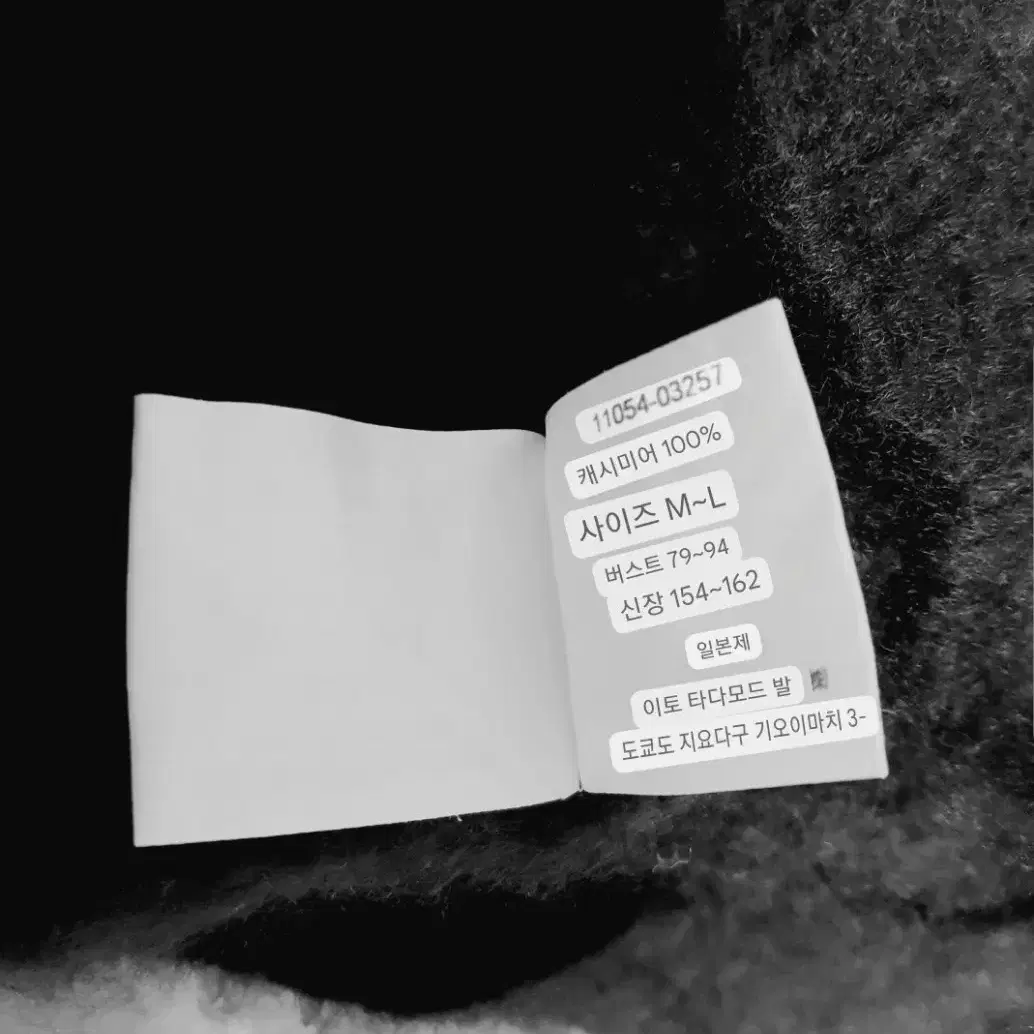 11054-03257
캐시미어 100%
사이즈 M~L
버스트 79~94
신장 154~162
일본제
이토 타다모드 발
도쿄도 지요다구 기오이마치 3-